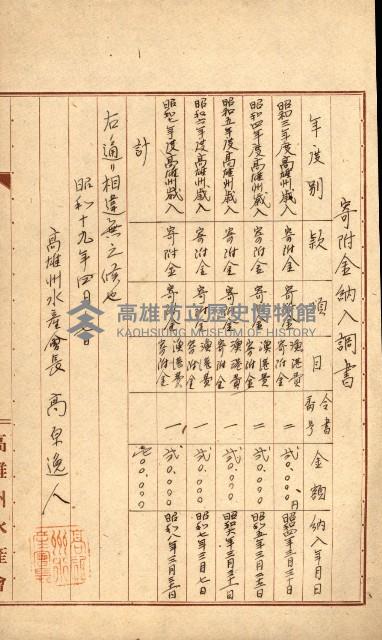 寄附金納入調書
年度別 款 項 目 令書番号 金額 納入年月日
昭和三年度高雄州歳入 寄附金 寄附金 漁港費寄附金 二 弐〇.〇〇〇円 昭和四年三月三十日
昭和四年度高雄州歳入 寄附金 寄附金 漁港費寄附金 二 弐〇.〇〇〇 昭和五年三月二五日
昭和五年度高雄州歳入 寄附金 寄附金 漁港費寄附金 一 弐〇.〇〇〇 昭和六年三月三十一日
昭和六年度高雄州歳入 寄附金 寄附金 漁港費寄附金 一 弐〇.〇〇〇 昭和七年三月七日
昭和七年度高雄州歳入 寄附金 寄附金 漁港費寄附金 一 弐〇.〇〇〇 昭和八年三月三十一日
計 〇.〇〇〇
右通リ相違無之候也
昭和十九年四月 日
高雄州水産會長 高原逸人
高雄州水産會
高雄市立歷史博物館
KAOHSIUNG MUSEUM OF HISTORY